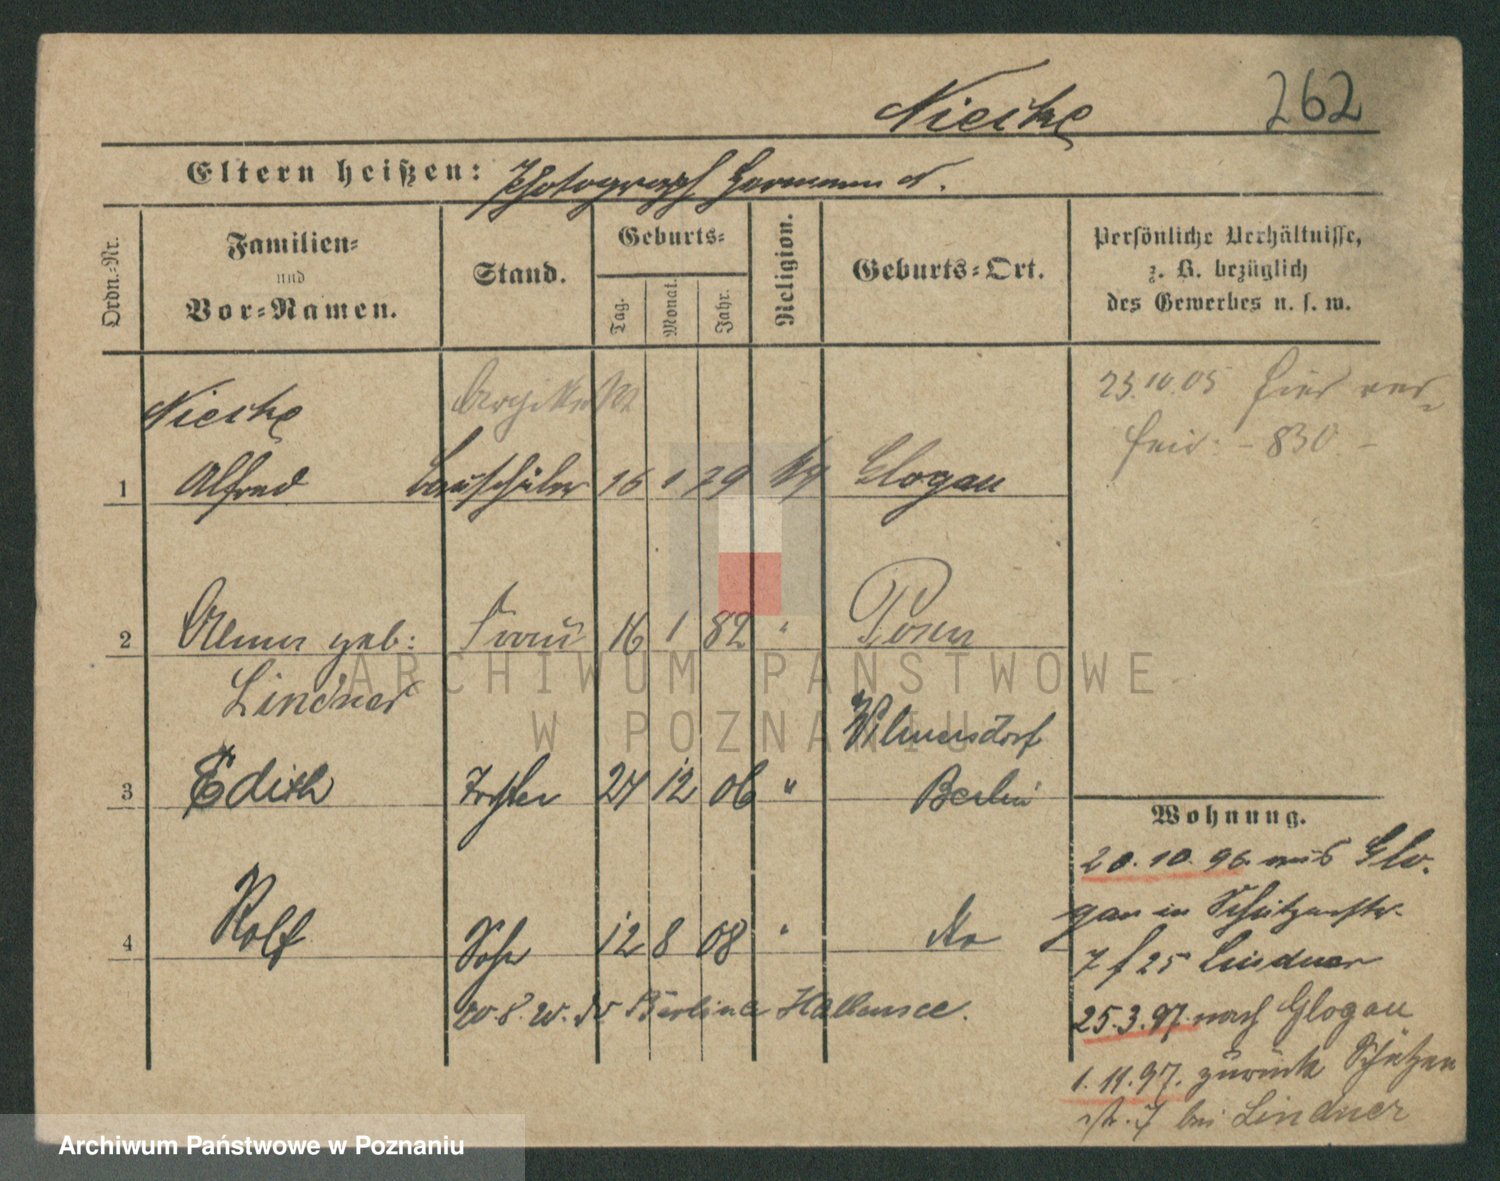 Nieske 262
Eltern heißen: Photograph Hermann N.
Ordn.-Nr.
Familien-
und
Vor-Namen.
Stand.
Geburts-
Tag.
Monat.
Jahr.
Religion.
Geburts-Ort.
Persönliche Verhältnisse,
z. B. bezüglich
des Gewerbes u. s. w.
Nieske Architekt 23.10.05 hier ver-
1 Alfred Bauschüler 16 1 79 Glogau 830
2 Alma geb: Frau 16 1 82 " Posen
Lindner
Wilmersdorf
3 Edith Tochter 27 12 06 " Berlin
Wohnung.
20.10.96 aus Glo-
gau in Schützenstr.
4 Rolf Sohn 12 8 08 " do
7 f 25 Lindner
Berlin Halensee.
25.3.97. nach Glogau
1.11.97. zurück Schützen
str. 7 bei Lindner
ARCHIWUM PAŃSTWOWE
W POZNANIU
Archiwum Państwowe w Poznaniu